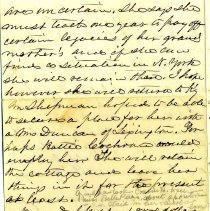 are uncertain. She says she
must teach one year to pay off
certain legacies of her grand
mother's and if she can
find a situation in N. York
she will remain there. I hope
however she will return to the
Mr Shipman hoped to be able
to secure a place for her with
a Mr Duncan of Lexington. Per
haps Hattie Cochran would
another her She will retain
the cottage and leave her
things in it for the present
at least.